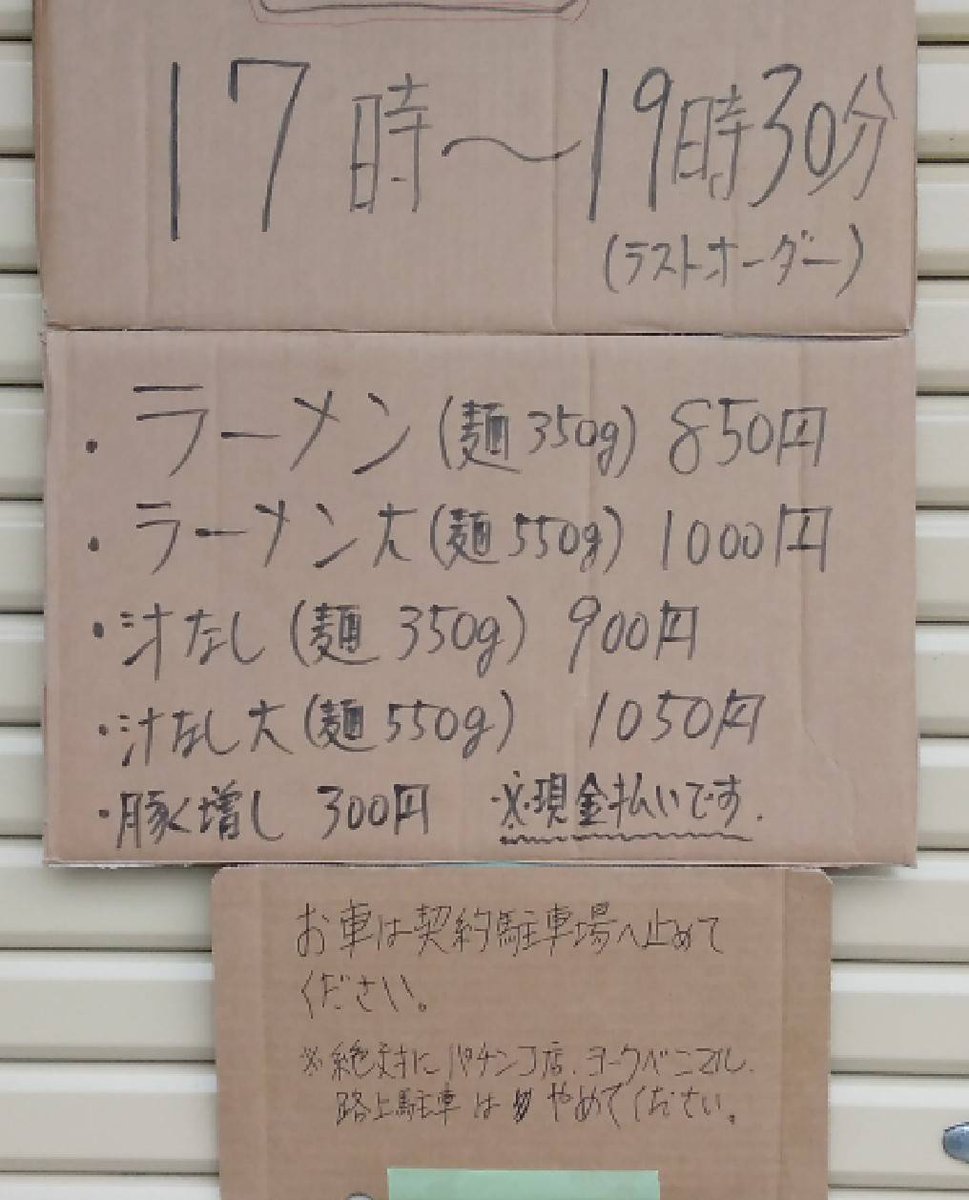 17時〜19時30分
(ラストオーダー)
・ラーメン(麺350g) 850円
・ラーメン大(麺550g) 1000円
・汁なし(麺350g) 900円
・汁なし大(麺550g) 1050円
・豚増し 300円 ※現金払いです.
お車は契約駐車場へ止めて
ください。
※絶対にパチンコ店、ヨークベニマル、
路上駐車は やめてください。